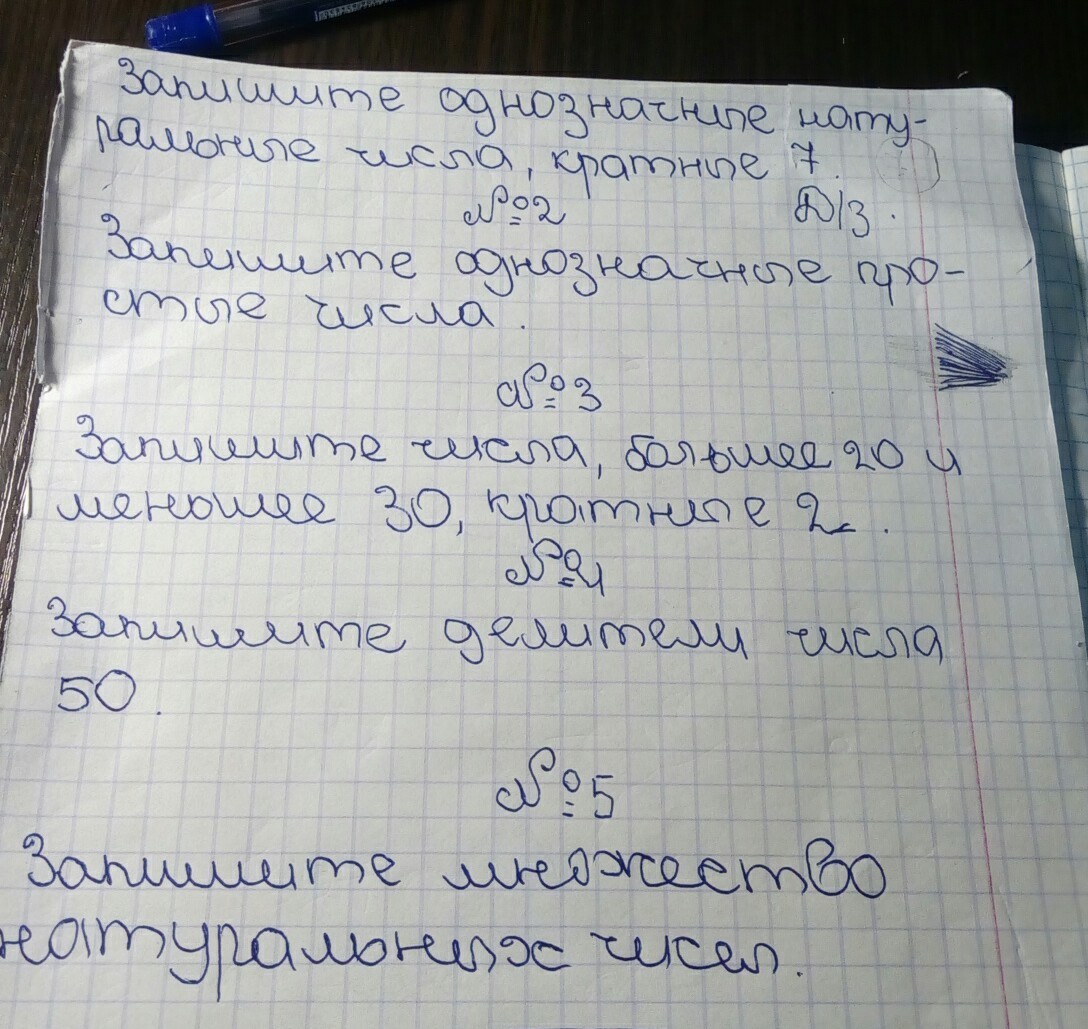 Запишите однозначные нату-
ральные числа, кратные 7.
№2 Д/З.
Запишите однозначные про-
стые числа.
№3
Запишите числа, большее 20 и
меньшее 30, кратные 2.
№4
Запишите делители числа
50.
№5
Запишите множество
натуральных чисел.